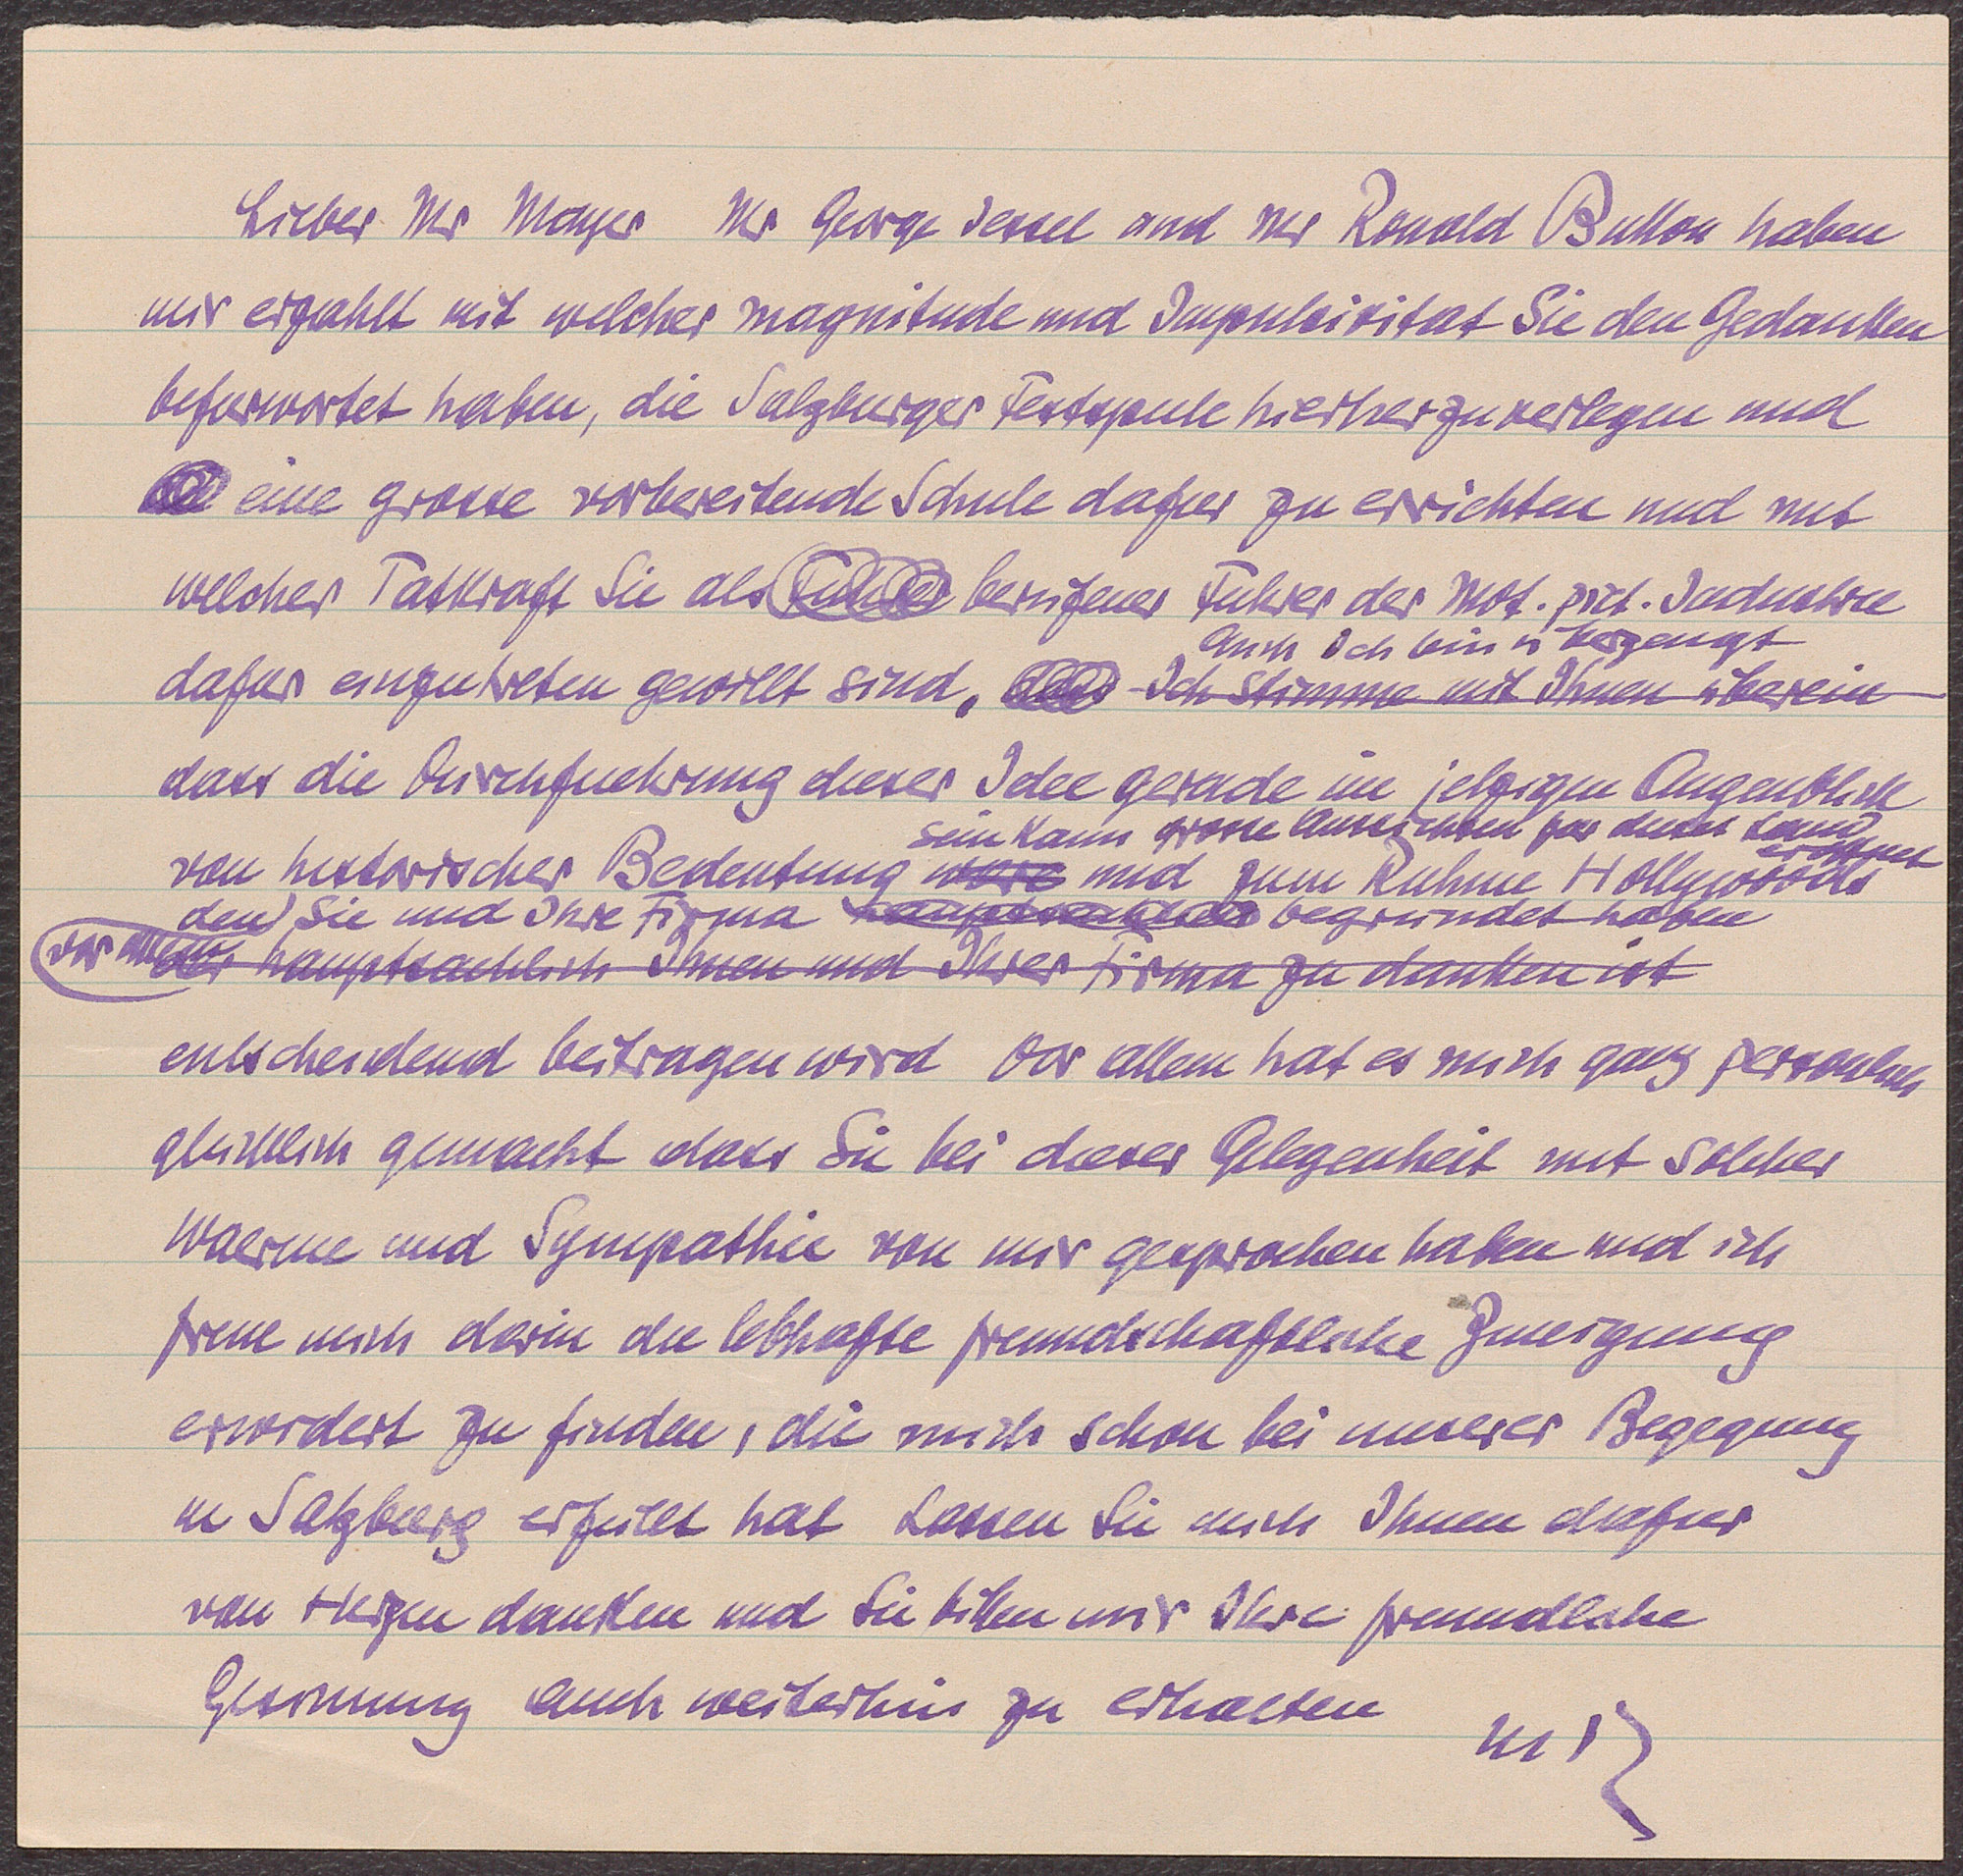 Lieber Mr Mayer Mr George Jessel und Mr Ronald Button haben
mir erzahlt mit welcher magnitude und Impulsivitat Sie den Gedanken
befurwortet haben, die Salzburger Festspiele hierherzuverlegen und
eine grosse vorbereitende Schule dafuer zu errichten und mit
welcher Tatkraft Sie als berufener Fuhrer der Mot. pict. Industrie
Auch Ich bin überzeugt
dafur einzutreten gewillt sind. Ich stimme mit Ihnen überein
dass die Durchfuehrung dieser Idee gerade im jetzigen Augenblick
sein kann grosse Aussichten fur dieses Land eröffnet
von historischer Bedeutung wäre und zum Ruhme Hollywoods
den Sie und Ihre Firma hauptsachlich begründet haben
vor allem der hauptsachlich Ihnen und Ihrer Firma zu danken ist
entscheidend beitragen wird Vor allem hat es mich ganz personlich
glücklich gemacht dass Sie bei dieser Gelegenheit mit solcher
Waerme und Sympathie von mir gesprochen haben und ich
freue mich darin die lebhafte freundschaftliche Zuneigung
erwidert zu finden, die mich schon bei unserer Begegnung
in Salzburg erfüllt hat Lassen Sie mich Ihnen dafuer
von Herzen danken und Sie bitten mir Ihre freundliche
Gesinnung auch weiterhin zu erhalten